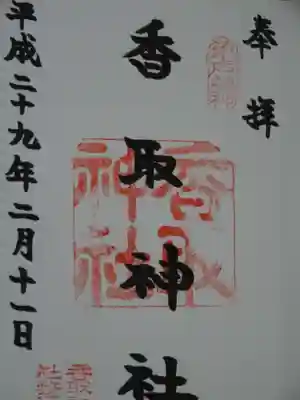 奉拝
香取神社
平成二十九年二月十一日
香取神社